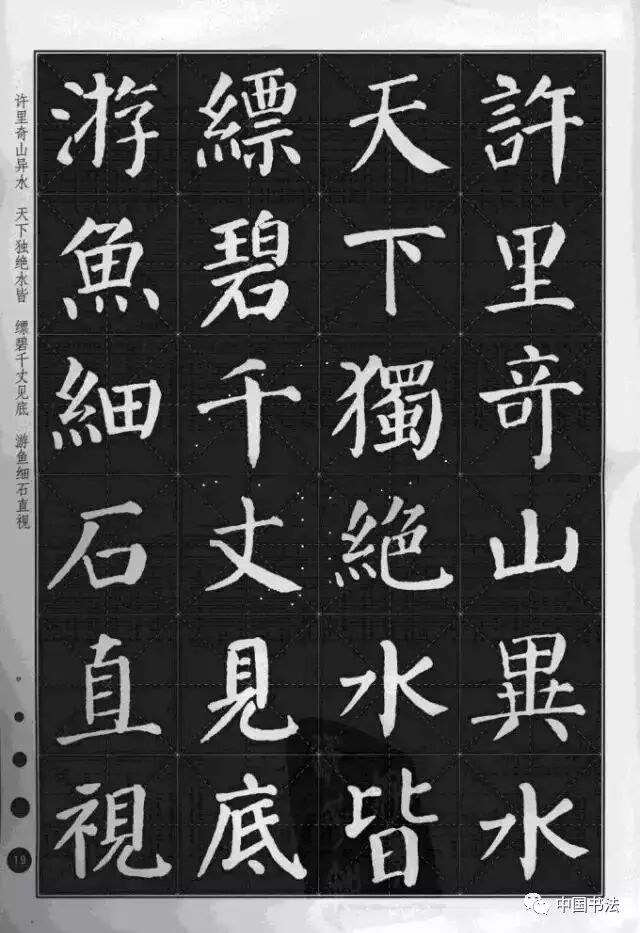 許里奇山異水
天下獨絕水皆
縹碧千丈見底
游魚細石直視
许里奇山异水 天下独绝水皆 缥碧千丈见底 游鱼细石直视
19
中国书法